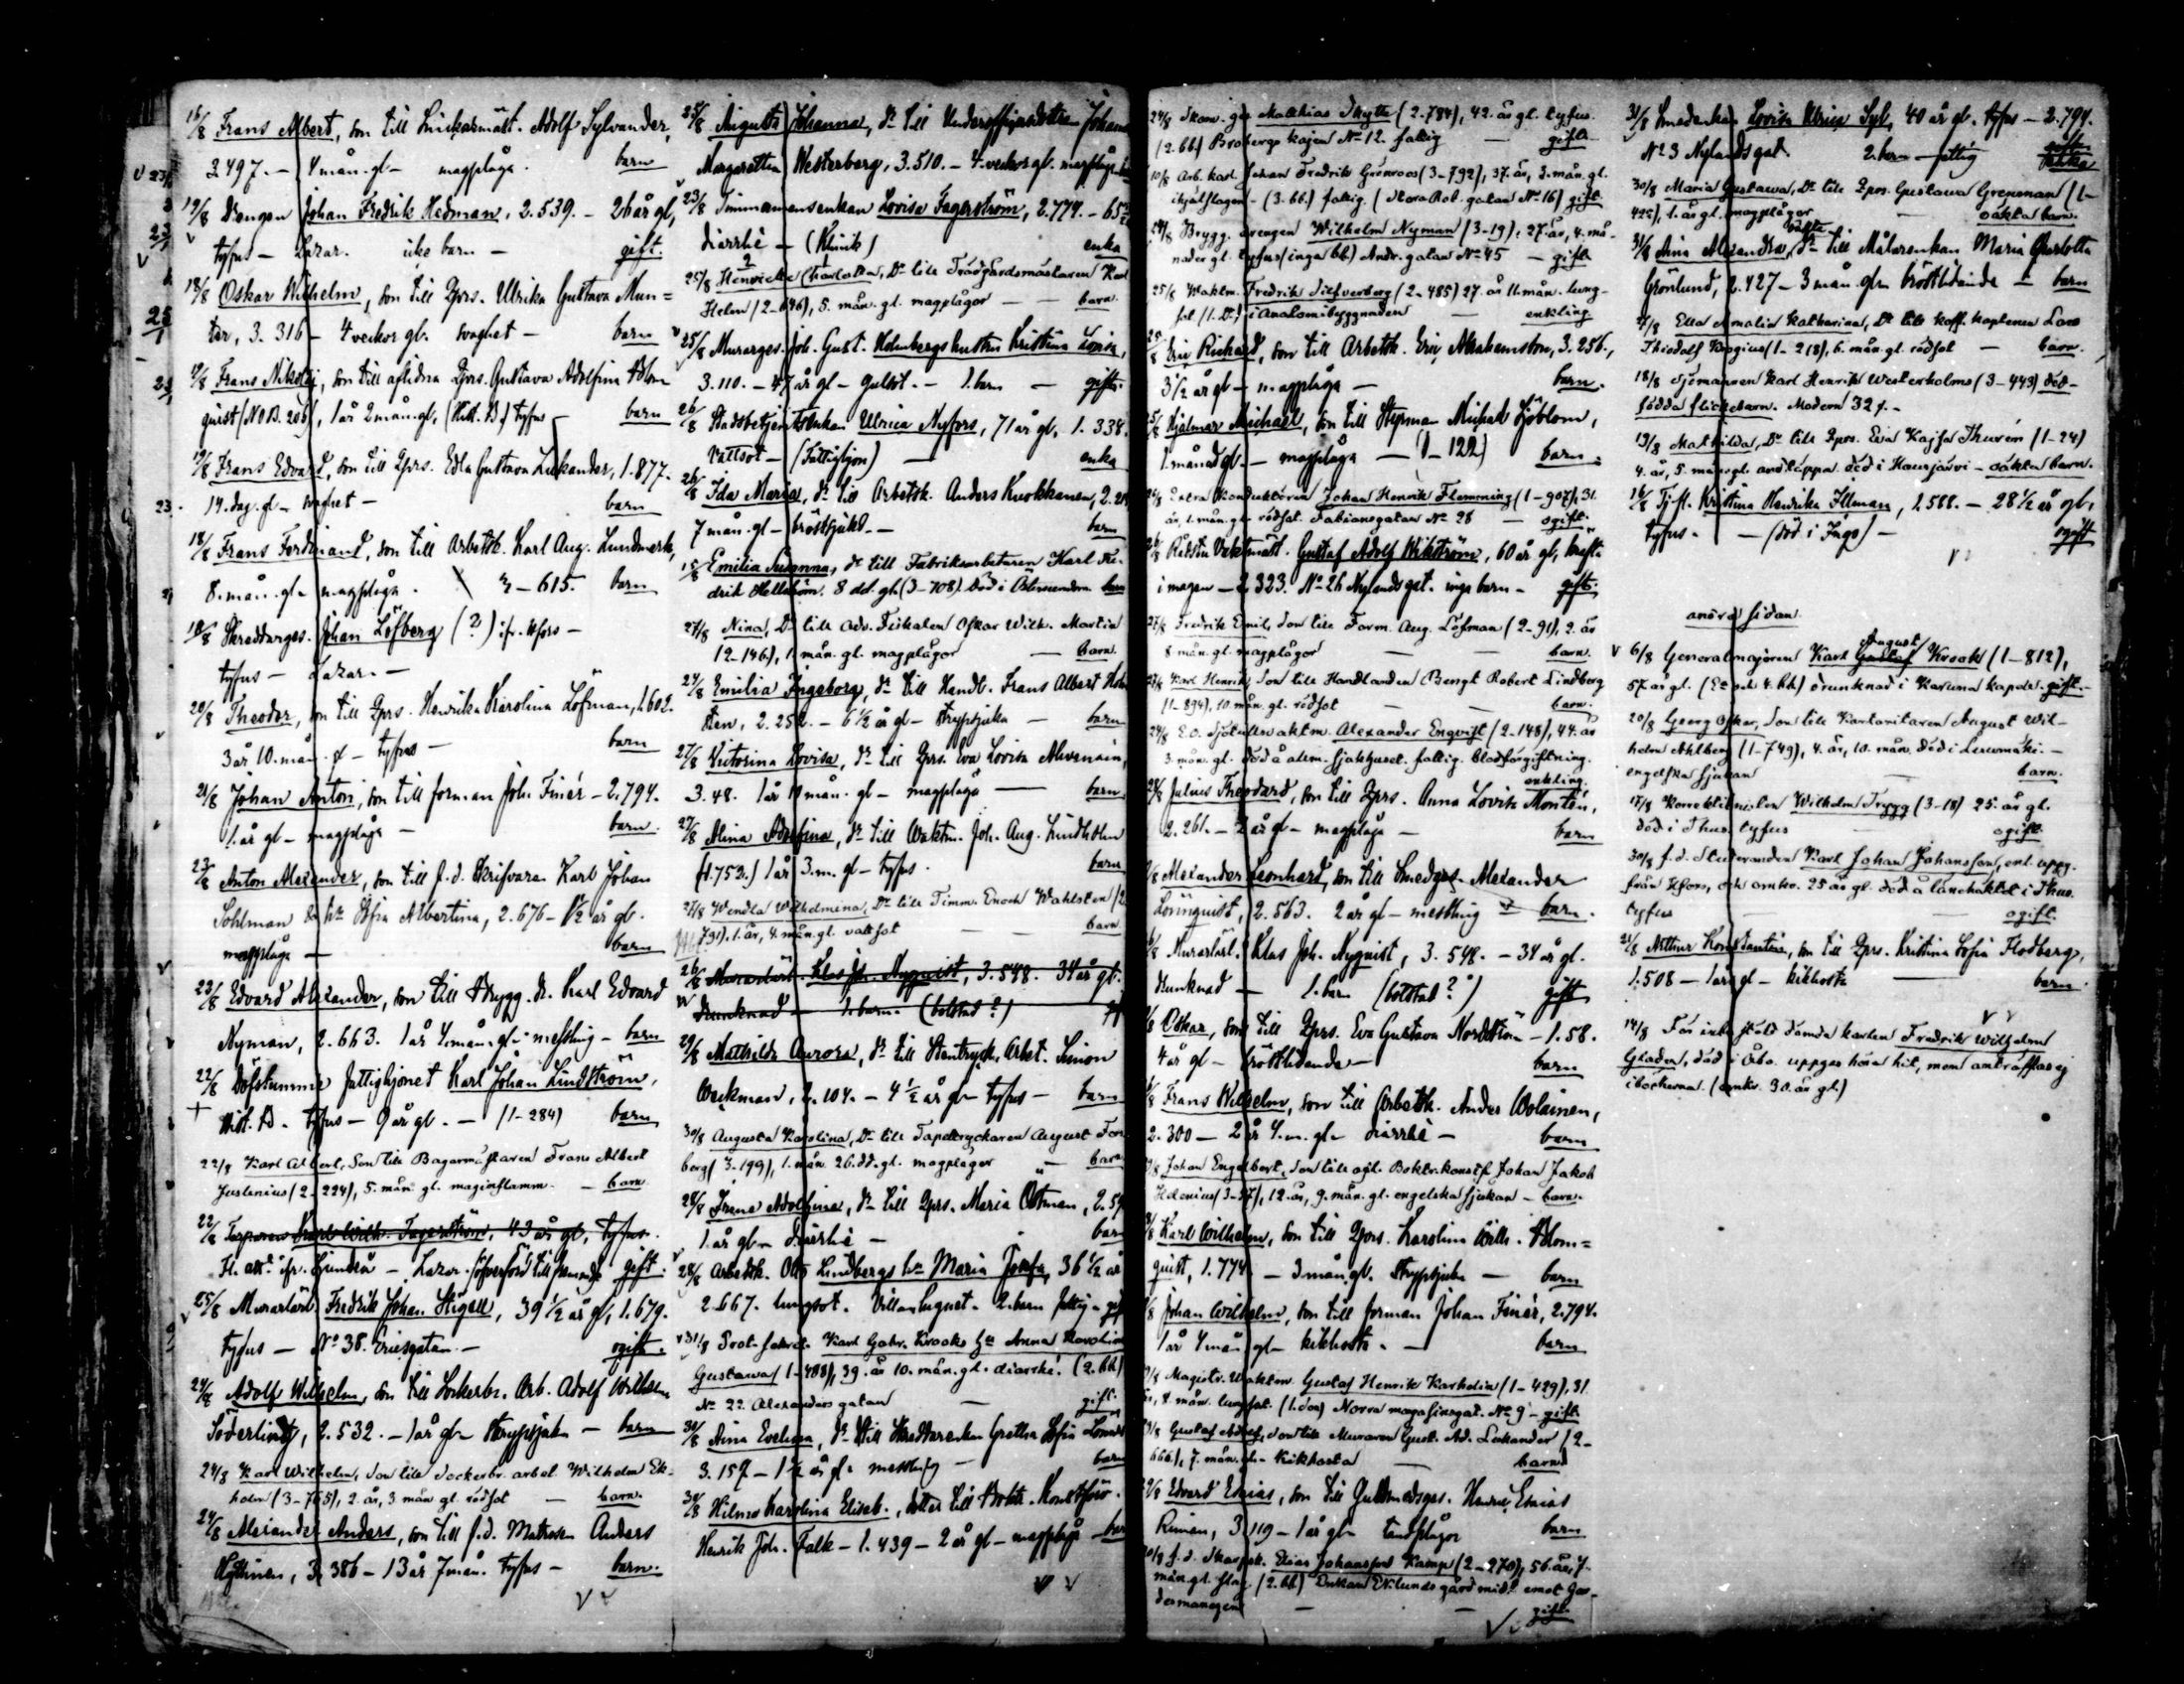 16/8 Frans Albert, son till Snickaremäst. Adolf Sylvander,
3.497. - 4 mån. gl - magplåga. barn
19/8 Drengen Johan Fredrik Hedman, 2.539. - 26 år gl,
tyfus - Lazar. icke barn - gift.
18/8 Oskar Wilhelm, son till Qprs. Ulrika Gustava Mun=
ter, 3.316 - 4 veckor gl. svaghet - barn
Frans Nikolaj, son till aflidna Qprs. Gustava Adolfina Blom
quist (NOB. 206), 1 år 2 mån. gl, tyfus - barn
19/8 Frans Edvard, son till Qprs. Edla Gustava Lukander, 1.877.
14. dag. gl - svaghet - barn
18/8 Frans Ferdinand, son till Arbetsk. Karl Aug. Lundmark,
8. mån. gl - magplåga. 3 - 615. barn
18/8 Skreddarges. Johan Löfberg (?) ifr. Hfors -
tyfus - Lazar. -
20/8 Theodor, son till Qprs. Henrika Karolina Löfman, 1.602.
3 år 10. mån. gl - tyfus - barn
21/8 Johan Anton, son till forman Joh. Finér - 2.794.
1. år gl - magplåga - barn.
23/8 Anton Alexander, son till f.d. Skrifvaren Karl Johan
Sohlman & hu Sofia Albertina, 2.676 - 1 1/2 år gl.
magplåga - barn
23/8 Edvard Alexander, son till Brygg. dr. Karl Edvard
Nyman, 2.663. 1 år 4 mån. gl - messling - barn
22/8 Döfstumme fattighjonet Karl Johan Lindström,
tyfus - 9 år gl. - (1-284) barn
22/8 Karl Albert, Son till Bagarmästaren Frans Albert
Juslenius (2-224), 5. mån. gl. maginflamm. - barn
22/8 Karl Wilh. Fagerström, 43 år gl, tyfus.
Lazar. gift.
25/8 Murarlärl. Fredrik Johan Stigell, 39 1/2 år gl, 1.679.
tyfus - No 38. Eriksgatan. - ogift.
24/8 Adolf Wilhelm, son till Sockerbr. Arb. Adolf Wilhelm
Söderlind, 2.532. - 1 år gl - strypsjuka - barn
24/8 Karl Wilhelm, Son till Sockerbr. arbet. Wilhelm Ek-
holm (3-765), 2. år, 3 mån gl. rödsot - barn.
24/8 Alexander Anders, son till f.d. Matrosen Anders
Hyttinen, 3.386 - 13 år 7 mån. tyfus - barn.
25/8 Augusta Johanna, dr till Underofficersdottren Johanna
Margaretha Westerberg, 3.510. - 4. veckor gl. magplåga
23/8 Timmermansenkan Lovisa Fagerström, 2.774. - 65
diarrhé - (Klinik) enka
25/8 Henriette Charlotta, Dr till Trädgårdsmästaren Karl
Helen (2-646), 5. mån. gl. magplågor - barn.
25/8 Murarges. Joh. Gust. Holmbergs hustru Kristina Lovisa,
3.110. - 47 år gl - gulsot. - 1. barn - gift.
26/8 Stadsbetjentsenkan Ulrica Nyfors, 71 år gl, 1.338.
Vattsot - (Fattighjon) - enka
26/8 Ida Maria, dr till Arbetsk. Anders Kuokkanen,
7 mån. gl - bröstsjukd. - barn
15/8 Emilia Susanna, dr till Fabriksarbetaren Karl Fre-
drik Hellström. 8 dd. gl. (3-708). Död i Östersundom barn
27/8 Nina, Dr till Adv. Fiskalen Oskar Wilh. Martin
(2-146), 1. mån. gl. magplågor - barn.
27/8 Emilia Ingeborg, dr till Handl. Frans Albert
2.252. - 6 1/2 år gl - strypsjuka - barn
27/8 Victorina Lovisa, dr till Qprs. Eva Lovisa Ahvenain,
3.48. 1 år 10 mån. gl - magplåga - barn
27/8 Alina Adolfina, dr till Vaktm. Joh. Aug. Lindholm
(1.752.) 1 år 3. m. gl - tyfus. barn
27/8 Wendla Wilhelmina, Dr till Timm. Enoch Wahlsten (2
791), 1. år, 4. mån. gl. vattsot - barn
26/8 Murarlärl. Klas Joh. Nyqvist, 3.548. 34 år gl.
drunknad - 1. barn. (bolstad?)
29/8 Mathilda Aurora, dr till Stentryck. Arbet. Simon
Weckman, 2.104. - 4 1/2 år gl - tyfus - barn
30/8 Augusta Karolina, Dr till Tapettryckaren August Fors
berg (3-199), 1. mån. 26. dd. gl. magplågor - barn
28/8 Irene Adolfina, dr till Qprs. Maria Östman,
1. år gl - diarrhé - barn
28/8 Arbetsk. Otto Lindbergs hu Maria Josefa, 36 1/2 år
2.667. lungsot. Villan Lugnet. 2. barn fattig -
31/8 Prot. sekret. Karl Gabr. Krooks hu Anna Karolina
Gustava (1-488), 39. år 10. mån. gl. diarrhé. (2. bb)
No 22. Alexanders gatan - gift.
30/8 Aina Evelina, dr till Skreddarenkan Gretha Sofia
3.157 - 1 1/2 år gl. messling - barn
30/8 Hilma Karolina Elisab., dotter till Boktr. Konstförv.
Henrik Joh. Falk - 1.439 - 2 år gl - magplåga - barn
Matthias Skytte (2.784), 42. år gl. tyfus.
(2. bb.) Brobergs kajen No 12. fattig - gift.
Arb. karl Johan Fredrik Grönroos (3-792), 37. år, 3. mån. gl.
ihjälslagen - (3. bb.) fattig. (Stora Rob. gatan No 16) gift
Brygg. drengen Wilhelm Nyman (3-19), 27. år, 4. må-
nader gl. tyfus (inga bb) Andr. gatan No 45 - gift
25/8 Waktm. Fredrik Silfverberg (2-485) 27. år 11. mån. lung-
sot (1. Dr.) i Anatomibyggnaden - enkling
Eric Richard, son till Arbetsk. Eric Abrahamsson, 3.256.,
3 1/2 år gl - magplåga - barn.
25/8 Hjalmar Michael, son till Styrman Michael Sjöblom,
1. månad gl. - magplåga - (1-122) barn.
Extra Konduktören Johan Henrik Flemming (1-907), 31.
år, 1. mån. gl. rödsot. Fabiansgatan No 28 - ogift.
Vaktmäst. Gustaf Adolf Wikström, 60 år gl, kräfta
i magen - 2.323. No 26 Nylandsgat. inga barn - gift.
27/8 Fredrik Emil, Son till Form. Aug. Löfman (2-91), 2. år
8. mån. gl. magplågor - barn.
Karl Henrik, Son till Handlanden Bengt Robert Lindberg
(1-894), 10. mån. gl. rödsot - barn.
E.O. Sjötullsvaktm. Alexander Enqvist (2-148), 44. år
3. mån. gl. död å alm. sjukhuset. fattig. blodförgiftning.
enkling.
Julius Theodard, son till Qprs. Anna Lovisa Montén,
2.261. - 2 år gl - magplåga - barn
Alexander Leonhard, son till Smedges. Alexander
Lönnquist, 2.563. 2 år gl - messling - barn.
Murarlärl. Klas Joh. Nyqvist, 3.548. - 34 år gl.
drunknad - 1. barn (bolstad?) gift
Oskar, son till Qprs. Eva Gustava Nordström - 1.58.
4 år gl - bröstlidande - barn
Frans Wilhelm, son till Arbetsk. Anders Wolainen,
2.300 - 2 år 4. m. gl - diarrhé - barn
Johan Engelbert, Son till afl. Boktr. konstf. Johan Jakob
Helenius (3-37), 12. år, 9. mån. gl. engelska sjukan - barn.
Karl Wilhelm, son till Qprs. Karolina Wilh. Blom=
quist, 1.774. - 3 mån. gl. strypsjuka - barn
Johan Wilhelm, son till forman Johan Finér, 2.794.
1 år 4 mån gl - kikhosta - barn
Magistr. Waktm. Gustaf Henrik Karhelin (1-429), 31.
år, 8. mån. lungsot. (1. son) Norra magasinsgat. No 9 - gift
Gustaf Adolf, Son till Muraren Gust. Ad. Lukander (2-
666.), 7. mån. gl. Kikhosta - barn
Edvard Enias, son till Guldsmedsges. Henric Enias
Runian, 3.119 - 1 år gl - tandplågor barn
f.d. Skarpsk. Elias Johansson Kamp (2-270), 56. år, 7.
mån. gl. slag (2. bb) Enkan Eklunds gård midt emot Gar-
desmanegen - gift.
31/8 Smedenkan Lovisa Ulrica Syb, 40 år gl. tyfus - 2.794.
No 3 Nylandsgat. 2. barn - fattig enka
30/8 Maria Gustava, Dr till Qprs. Gustava Grensman (1-
425), 1. år gl. magplågor - oäkta barn.
31/8 Anna Alexandra, dr till Målarenkan Maria Charlotta
Grönlund, 2.427 - 3 mån. gl - bröstlidande - barn
Ella Amalia Katharina, Dr till koff. kaptenen Lars
Thiodolf Krogius (1-218), 6. mån. gl. rödsot - barn.
18/8 Sjömannen Karl Henrik Westerholms (3-443) död-
födda flickebarn. Modern 32 f. -
19/8 Mathilda, Dr till Qprs. Eva Kajsa Thurén (1-24)
4. år, 5. mån. gl. andtäppa. död i Hausjärvi - oäkta barn.
16/8 Tjfl. Kristina Henrika Illman, 1.588. - 28 1/2 år gl,
tyfus. - (död i Ingo) - ogift
andra sidan.
6/8 Generalmajoren Karl August Krook (1-812),
57. år gl. drunknad i Karuna kapell. gift. -
20/8 Georg Oskar, Son till Kartoritaren August Wil-
helm Ahlberg (1-749), 4. år, 10. mån. död i Leivomäki. -
engelska sjukan - barn.
17/8 Korrektionisten Wilhelm Trygg (3-18) 25. år gl.
död i Thus. tyfus - ogift.
30/8 f.d. Studeranden Karl Johan Johansson, enl. uppg.
från Hfors, och omkr. 25 år gl. död å länehäktet i Thus.
tyfus - ogift.
21/8 Arthur Konstantin, son till Qprs. Kristina Sofia Flodberg,
1.508 - 1 år gl - kikhosta - barn.
14/8 För inbr. stöld dömda karlen Fredrik Wilhelm
Gladen, död i Åbo. uppges höra hit, men anträffas ej
i böckerna. (omkr. 30. år gl.)